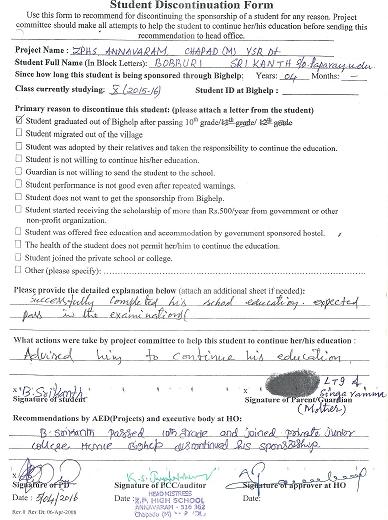 Student Discontinuation Form
Use this form to recommend for discontinuing the sponsorship of a student for any reason. Project
committee should make all attempts to help the student to continue her/his education before sending this
recommendation to head office.
Project Name : ZPHS, ANNAVARAM, CHAPAD (M) YSR Dt
Student Full Name (In Block Letters): BOBBURI SRIKANTH S/o
Since how long this student is being sponsored through Bighelp: Years: 04 Months: -
Class currently studying: X (2015-16) Student ID at Bighelp :
Primary reason to discontinue this student: (please attach a letter from the student)
Student graduated out of Bighelp after passing 10th grade/ 11th grade/ 12th grade
Student migrated out of the village
Student was adopted by their relatives and taken the responsibility to continue the education.
Student is not willing to continue his/her education.
Guardian is not willing to send the student to the school.
Student performance is not good even after repeated warnings.
Student does not want to get the sponsorship from Bighelp.
Student started receiving the scholarship of more than Rs.500/year from government or other
non-profit organization.
Student was offered free education and accommodation by government sponsored hostel.
The health of the student does not permit her/him to continue the education.
Student joined the private school or college.
Other (please specify):
Please provide the detailed explanation below (attach an additional sheet if needed):
successfully completed his school education. expected
pass in the examinations
What actions were take by project committee to help this student to continue her/his education :
Advised him to continue his education.
x B. Srikanth x LTI of
Signature of student Signature of Parent/Guardian
(Mother)
Recommendations by AED(Projects) and executive body at HO:
B. Srikanth passed 10th grade and joined private Junior
college Hence Bighelp discontinued his sponsorship.
Signature of PD Signature of PCC/auditor Signature of approver at HO
Date : 5/04/2016 Date : Date:
HEAD MISTRESS
Z.P. HIGH SCHOOL
ANNAVARAM - 516 362
Chapadu (M)
Rev. 0 Rev Dt: 06-Apr-2006